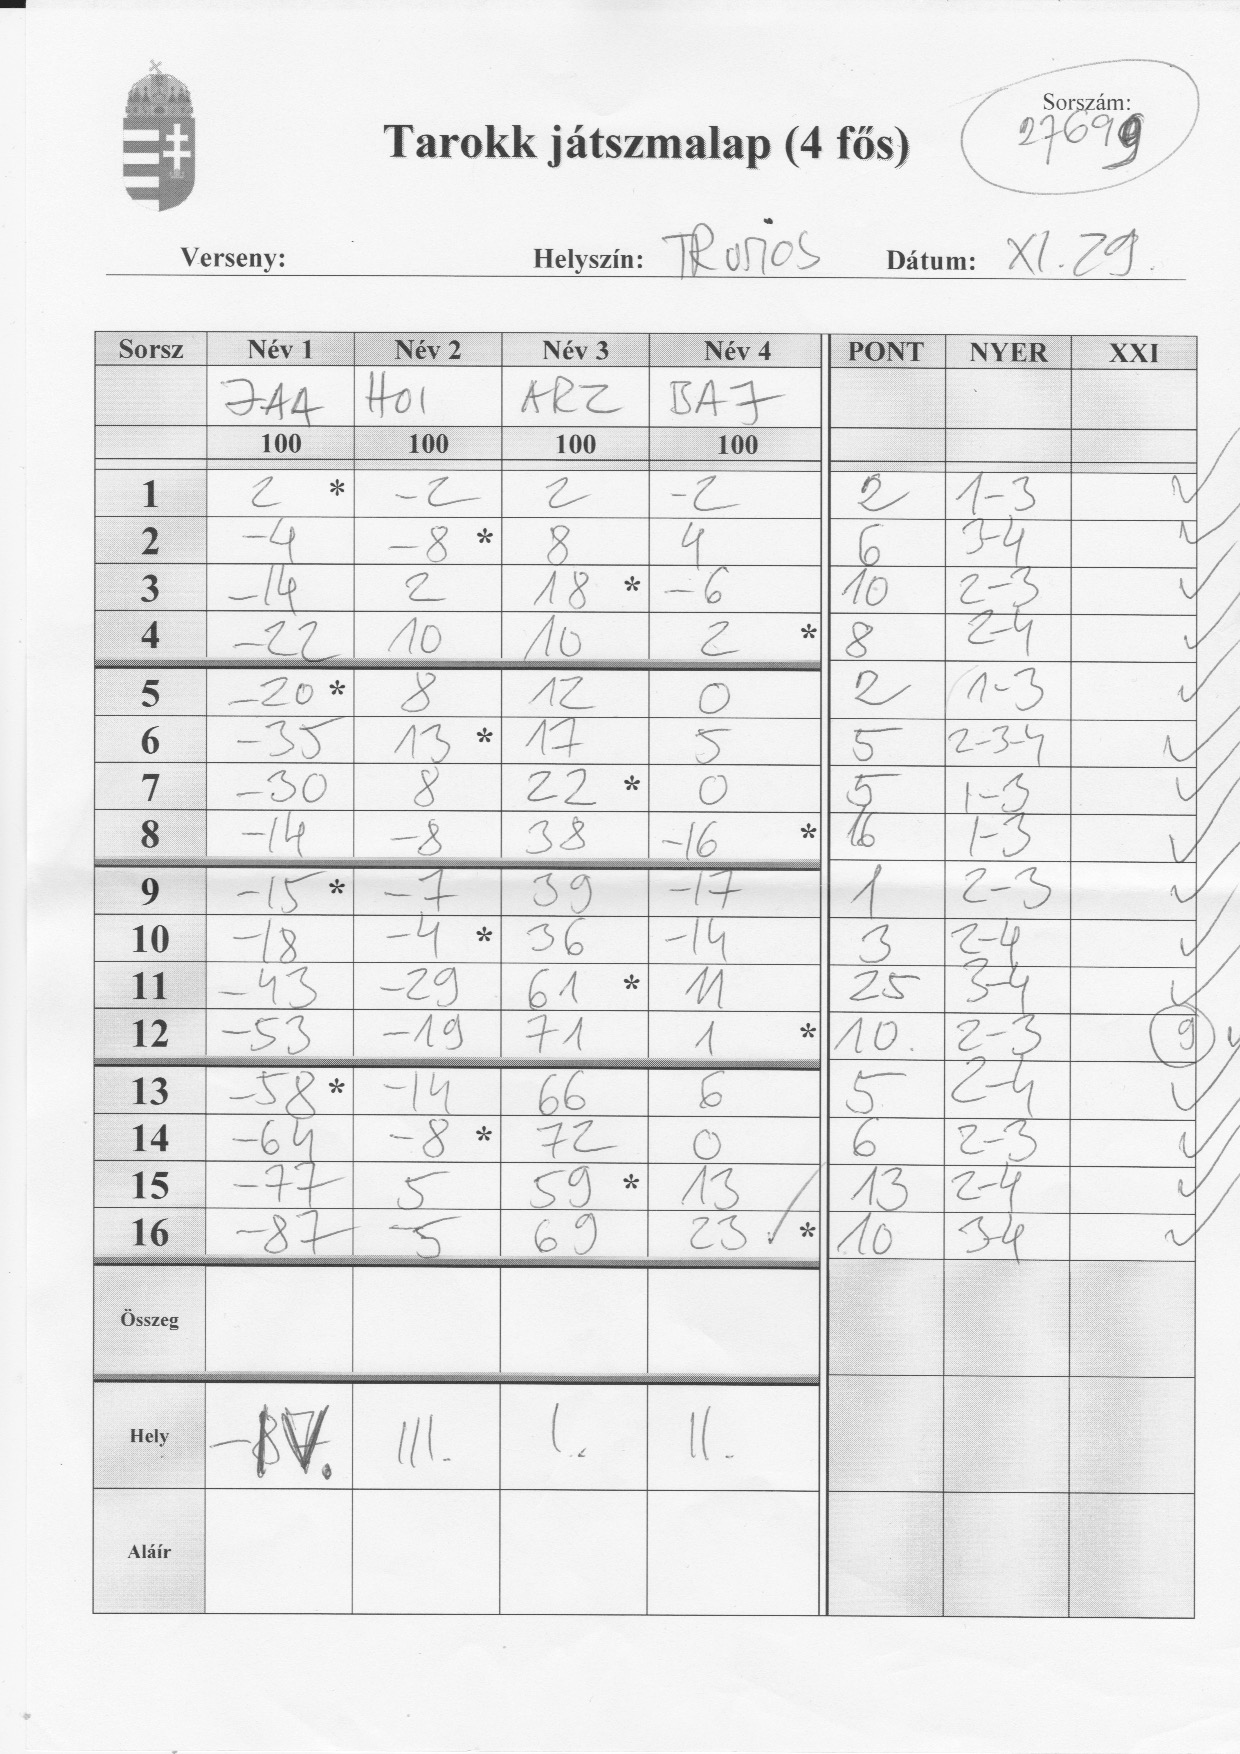 Sorszám:
27699
Tarokk játszmalap (4 fős)
Verseny: Helyszín: Dátum: XI. 29.
Sorsz Név 1 Név 2 Név 3 Név 4 PONT NYER XXI
JAA HOI ARZ BAJ
100 100 100 100
1 2 * -2 2 -2 2 1-3 ✓
2 -4 -8 * 8 4 6 3-4 ✓
3 -14 2 18 * -6 10 2-3 ✓
4 -22 10 10 2 * 8 2-4 ✓
5 -20 * 8 12 0 2 1-3 ✓
6 -35 13 * 17 5 5 2-3-4 ✓
7 -30 8 22 * 0 5 1-3 ✓
8 -14 -8 38 -16 * 16 1-3 ✓
9 -15 * -7 39 -17 1 2-3 ✓
10 -18 -4 * 36 -14 3 2-4 ✓
11 -43 -29 61 * 11 25 3-4 ✓
12 -53 -19 71 1 * 10. 2-3 9 ✓
13 -58 * -14 66 6 5 2-4 ✓
14 -64 -8 * 72 0 6 2-3 ✓
15 -77 5 59 * 13 13 2-4 ✓
16 -87 -5 69 23 ✓ * 10 3-4 ✓
Összeg
Hely IV. III. I. II.
Aláír